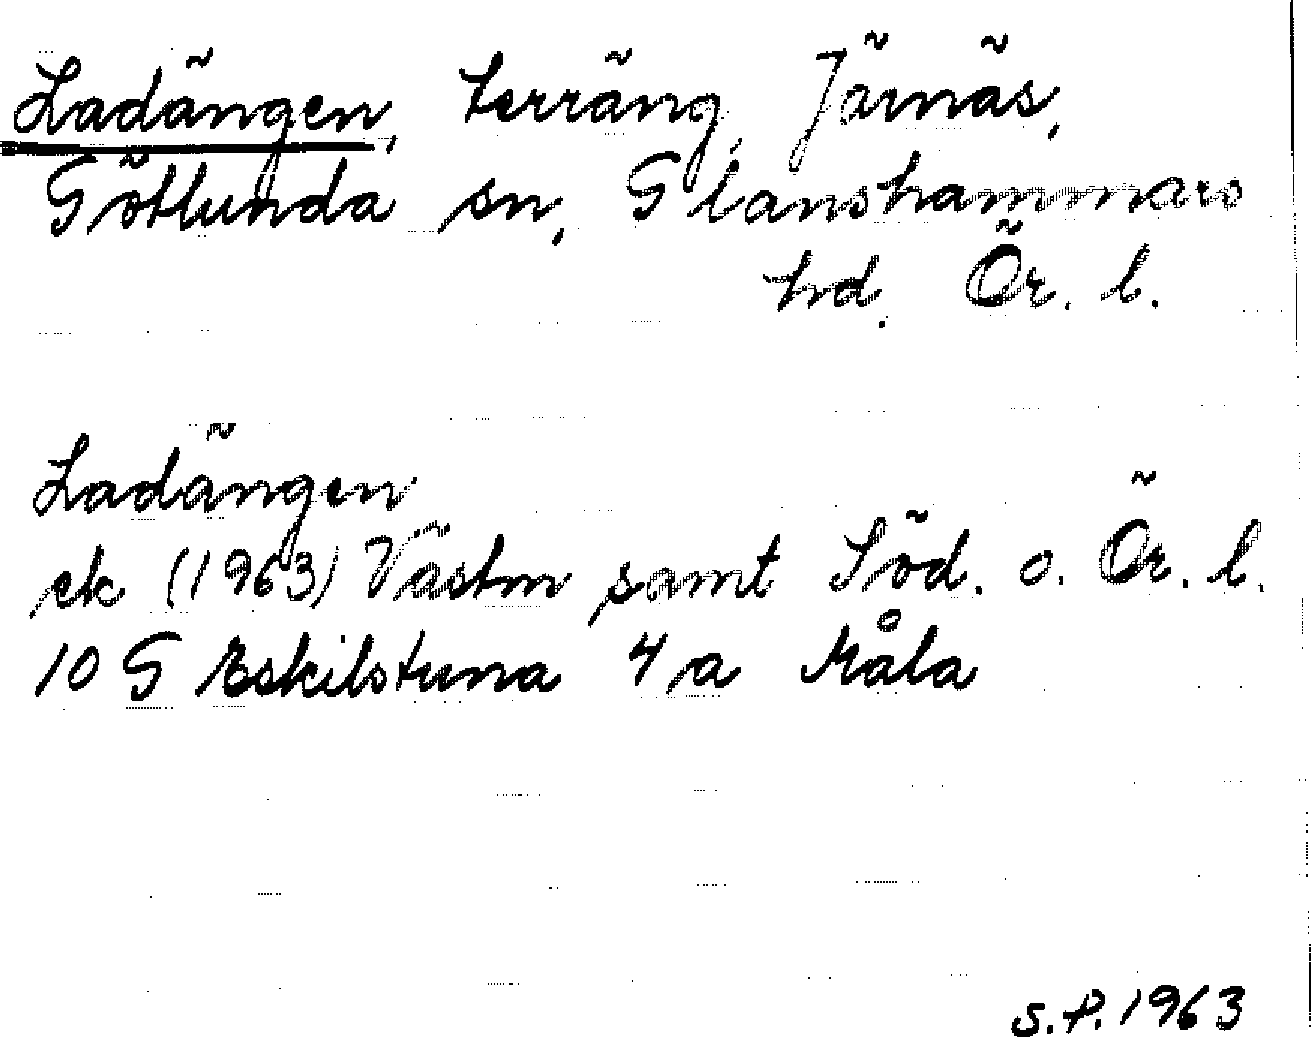 Ladängen, terräng, Järnäs,
Götlunda sn, Glanshammars
hd. Ör. l.
Ladängen
ek (1963) Västm samt Söd. o. Ör. l.
10 G Eskilstuna 4 a Måla
S.P. 1963